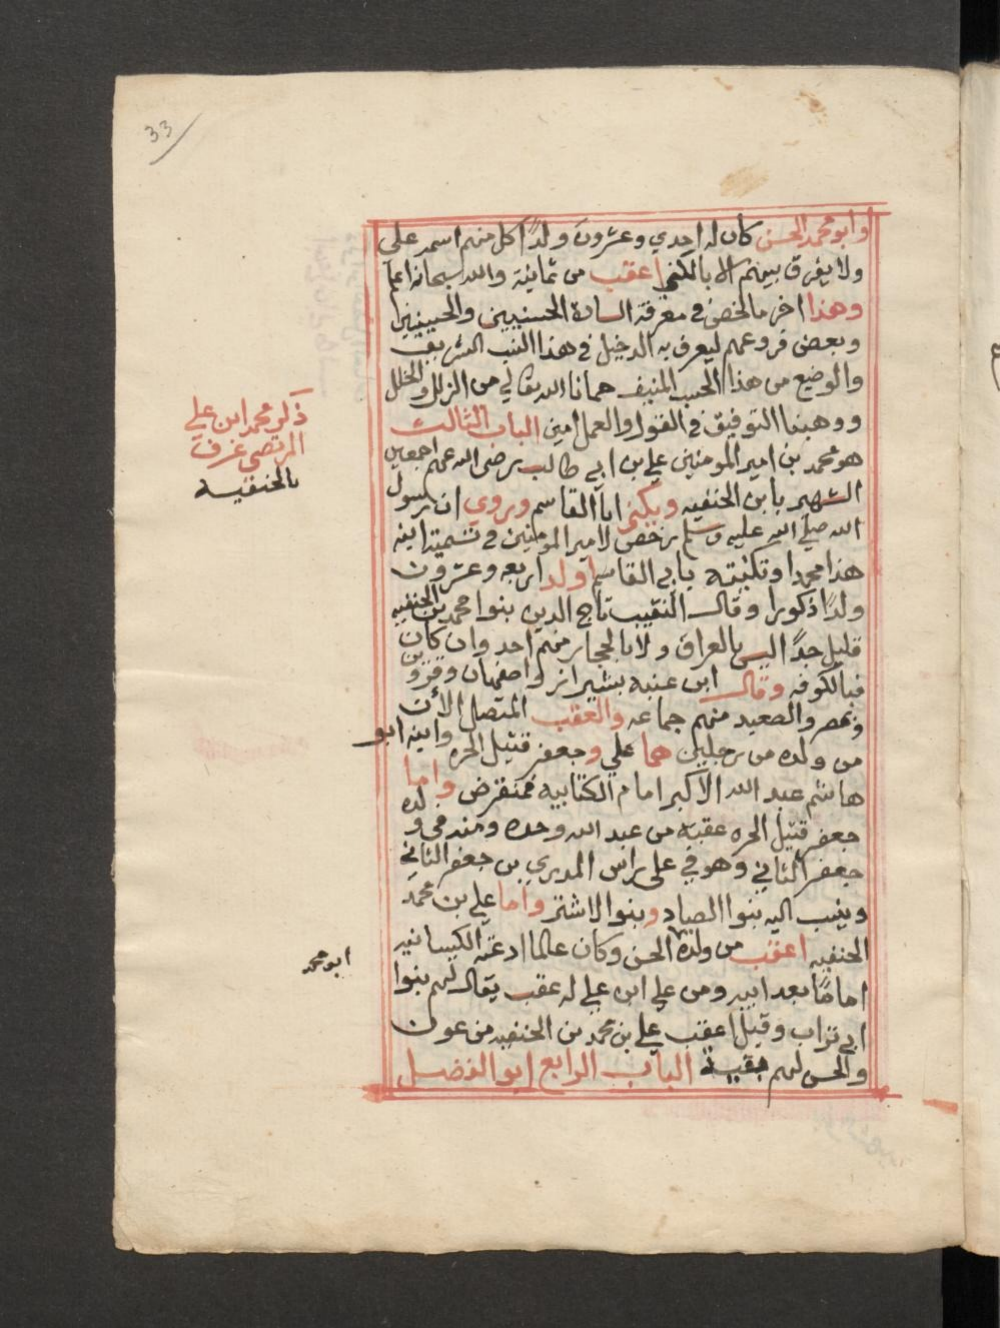 33
وابو محمد الحسن كان له احدي وعشرون ولدا كل منهم اسمه علي
ولا يفرق بينهم الا بالكني اعقب من ثمانية والله سبحانه اعلم
وهذا اخر ما لخص في معرفة السادة الحسنيين والحسينيين
وبعض فروعهم ليعرف به الدخيل في هذا النسب الشريف
والوضيع من هذا الحسب المنيف حمانا الله تعالي من الزلل والخلل
ووهبنا التوفيق في القول والعمل امين الباب الثالث
هو محمد بن امير المومنين علي بن ابي طالب رضى الله عنهم اجمعين
الشهير بابن الحنفيه ويكنى ابا القاسم وروي ان رسول
الله صلي الله عليه وسلم رخص لامير المومنين في تسمية ابنه
هذا محمدا وتكنيته بابي القاسم اولد اربعه وعشرون
ولدا ذكورا وقال النقيب تاج الدين بنوا محمد بن الحنفيه
قليل جدا ليس بالعراق ولا بالحجاز منهم احد وان كان
فبالكوفه وقال ابن عنبه بشيراز واصفهان وقزوين
وبمصر والصعيد منهم جماعه والعقب المتصل الأن
من ولده من رجلين هما علي وجعفر قتيل الحره وابنه ابو
هاشم عبد الله الاكبر امام الكتابيه فمنقرض واما
جعفر قتيل الحره عقبه من عبد الله وحده ومنه في ولده
جعفر الثاني وهو في علي براس المديري بن جعفر الثاني
وينسب اليه بنوا الصياد وبنوا الاشتر واما علي بن محمد
الحنفيه اعقب من ولده الحسن وكان عالما ادعته الكيسانيه
اماما بعد ابيه ومن علي ابن علي له عقب يقال لهم بنوا
ابي تراب وقيل اعقب علي بن محمد بن الحنفيه من عون
والحسن لهم بقية الباب الرابع ابو الفضل
ذكر محمد ابن علي
المرتضي عرف
بالحنفيه
ابو محمد